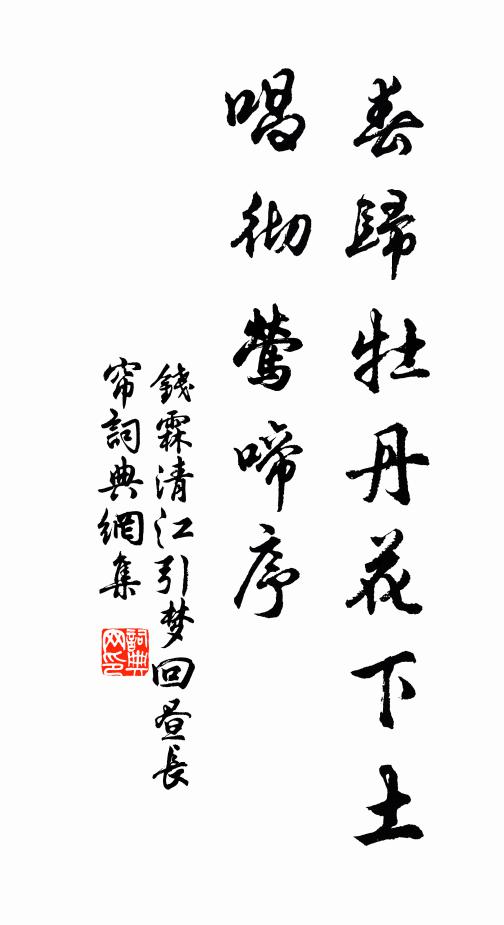 春歸牡丹花下土
唱彻鶯啼序
錢霖清江引梦回昼長
帘詞典網集
詞典网印